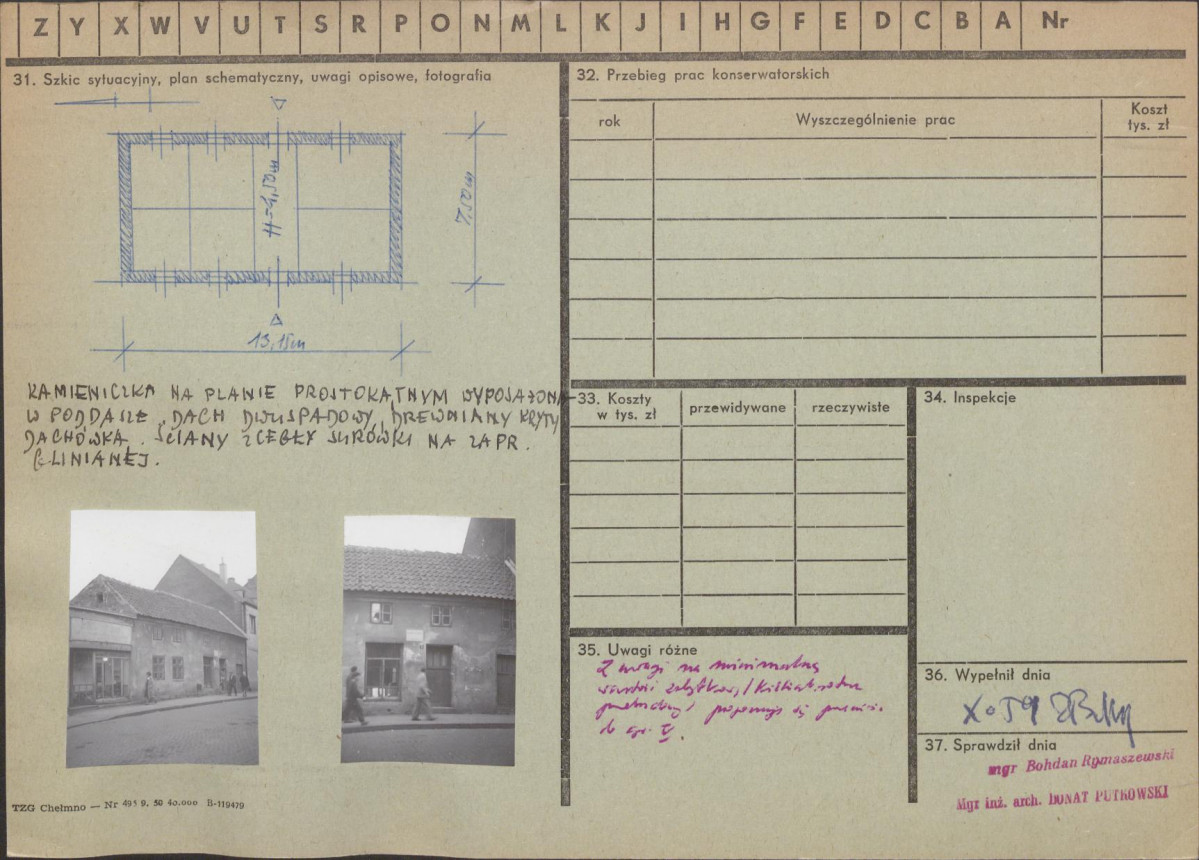 Z Y X W V U T S R P O N M L K J I H G F E D C B A Nr
31. Szkic sytuacyjny, plan schematyczny, uwagi opisowe, fotografia
H=4,50m
7.50m
13,15m
KAMIENICZKA NA PLANIE PROSTOKĄTNYM WYPOSAŻONA
W PODDASZE, DACH DWUSPADOWY, DREWNIANY KRYTY
DACHÓWKĄ. ŚCIANY Z CEGŁY SURÓWKI NA ZAPR.
GLINIANEJ.
TZG Chełmno — Nr 495 9. 50 40.000 B-119479
32. Przebieg prac konserwatorskich
rok
Wyszczególnienie prac
Koszt
tys. zł
33. Koszty
w tys. zł
przewidywane
rzeczywiste
34. Inspekcje
35. Uwagi różne
Z uwagi na minimalną
proponuje się
do gr. V.
36. Wypełnił dnia
X. 59
37. Sprawdził dnia
mgr Bohdan Rymaszewski
Mgr inż. arch. DONAT PUTKOWSKI